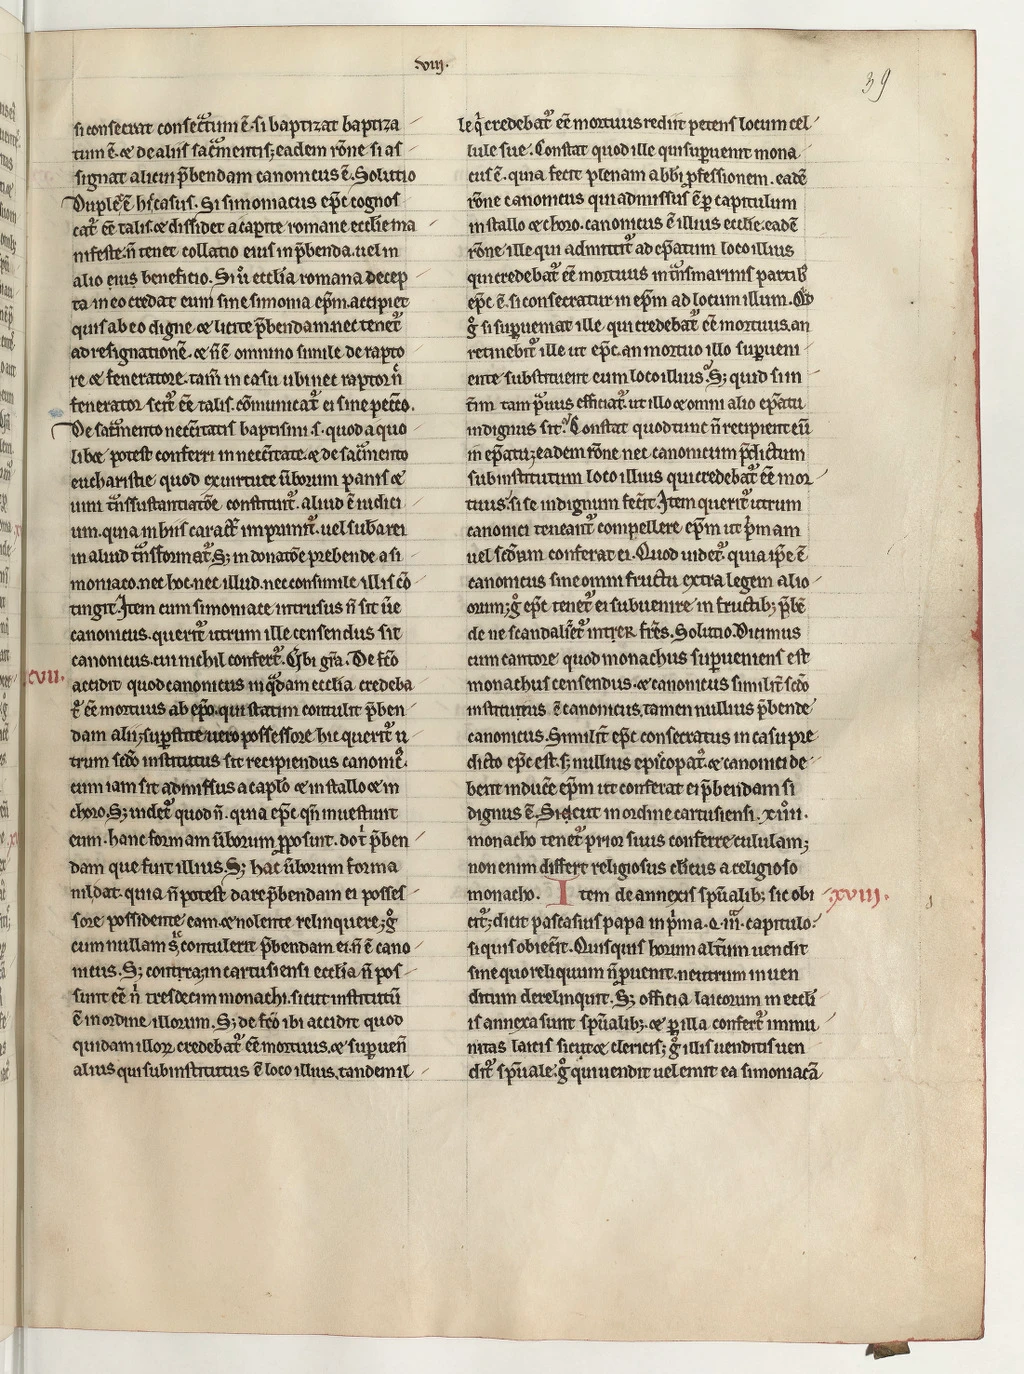 .viij.
39
si consecrat consec̄tum ē. si baptizat baptiza
tum ē. ⁊ de aliis sac̄mentis; eadem rōne si as
signat alicui p̄bendam canonicus ē. Solutio
Duplex ē hic casus. Si simoniacus ep̄c cognos
cat̉ eē talis. ⁊ dissidet a capite romane ecclie ma
nifeste. n̄ tenet collatio eius in p̄benda. uel in
alio eius beneficio. Si ů ecclīa romana decep
ta in eo credat eum sine simonia ep̄m. accipiet
quis ab eo digne ⁊ licite p̄bendam. nec tenet̉
ad resignationē. ⁊ n̄ ē omnino simile de rapto
re ⁊ feneratore. tam̄ in casu ubi nec raptor n̄
fenerator scit̉ eē talis. cōmunicat̉ ei sine pecc̄o.
De sac̄mento necc̄itatis baptismi .s. quod a quo
lib; potest conferri in necc̄itate. ⁊ de sac̄mento
eucharistie quod ex uirtute ūborum panis ⁊
uini t̄nssustantiatōe constituit̉. aliud ē iudici
um. quia in hiis caract̉ imprimit̉. uel suba rei
in aliud t̄nsformat̉. S; in donatōe prebende a si
moniaco. nec hoc. nec illud. nec consimile illis cō
tingit. Item cum simoniace intrusus n̄ sit ūe
canonicus. querit̉ utrum ille censendus sit
canonicus. cui nichil confert̉. Verbi gr̄a. De fc̄o
xvii.
accidit quod canonicus in q̇dam ecclīa credeba
t̉ eē mortuus ab ep̄o. qui statim contulit p̄ben
dam alii; sup̄stite uero possessore hic querit̉ u
trum sc̄do institutus sit recipiendus canonic̉.
cum iam sit admissus a capl̄o ⁊ in stallo ⁊ in
choro. S; uidet̉ quod n̄. quia ep̄c qn̄ inuestiuit
eum. hanc formam ūborum p̄posuit. do t̉ p̄ben
dam que fuit illius. S; hac ūborum forma
nil dat. quia n̄ potest dare p̄bendam ei posses
sore possidente eam. ⁊ nolente relinquere; g̉
cum nullam contulerit p̄bendam ei. n̄ ē cano
nicus. S; contra; in cartusiensi ecclīa n̄ pos
sunt eē n̉ tresdecim monachi. sicut institutū
ē in ordine illorum. S; de fc̄o ibi accidit quod
quidam illoꝝ credebat̉ eē mortuus. ⁊ sup̄uen̄
alius qui subinstitutus ē loco illius. tandem il
le q̇ credebat̉ eē mortuus rediit petens locum cel
lule sue. Constat quod ille qui sup̄uenit mona
cus ē. quia fecit plenam abb̄i p̄fessionem. eadē
rōne canonicus qui admissus ē p̱ capitulum
in stallo ⁊ choro. canonicus ē illius ecclie. eadē
rōne ille qui admittit̉ ad ep̄atum loco illius
qui credebat̉ eē mortuus in t̄nsmarinis partib;
ep̄c ē. si consecratur in ep̄m ad locum illum. Qd̄
g̉ si sup̄ueniat ille qui credebat̉ eē mortuus. an
retinebit̉ ille ut ep̄c. an mortuo illo sup̄ueni
ente substituent eum loco illius. S; quid si in
t̄im tam p̄uus efficiat̉. ut illo ⁊ omni alio ep̄atu
indignus sit. Constat quod tunc n̄ recipient eū
in ep̄atu; eadem rōne nec canonicum p̄dictum
subinstitutum loco illius qui credebat̉ eē mor
tuus. si se indignum fecit̉. Item querit̉ utrum
canonici teneant̉ compellere ep̄m ut p̉mam
uel sc̄dam conferat ei. Quod uidet̉. quia ip̄e ē
canonicus sine omni fructu extra legem alio
orum; g̉ ep̄c tenet̉ ei subuenire in fructib; p̄bē
de ne scandaliꝫet̉ inter fr̄es. Solutio. Dicimus
cum cantore quod monachus sup̄ueniens est
monachus censendus. ⁊ canonicus similit̉ sc̄do
institutus ē canonicus. tamen nullius p̄bende
canonicus. Similit̉ ep̄c consecratus in casu pre
dicto ep̄c est. s; nullius episcopat̉. ⁊ canonici de
bent induc̄e ep̄m ut conferat ei p̄bendam si
dignus ē. Sicut in ordine cartusiensi. xiiii.
monacho tenet̉ prior suus conferre cululam;
non enim differt religiosus cl̄icus a religioso
monacho. Item de annexis sp̄ualib; sic obi
xviii.
cit̉; dicit pascasius papa in p̉ma .q. iii. capitulo.
si quis obiec̄it. Quisquis horum alt̄um uendit
sine quo reliquum n̄ p̱uenit. neutrum in uen
ditum derelinquit. S; officia laicorum in eccli
is annexa sunt sp̄ualib; ⁊ p̱ illa confert̉ immu
nitas laicis sicut ⁊ clericis; g̉ illis uenditis uen
dit̉ sp̄uale. g̉ qui uendit uel emit ea simoniacā